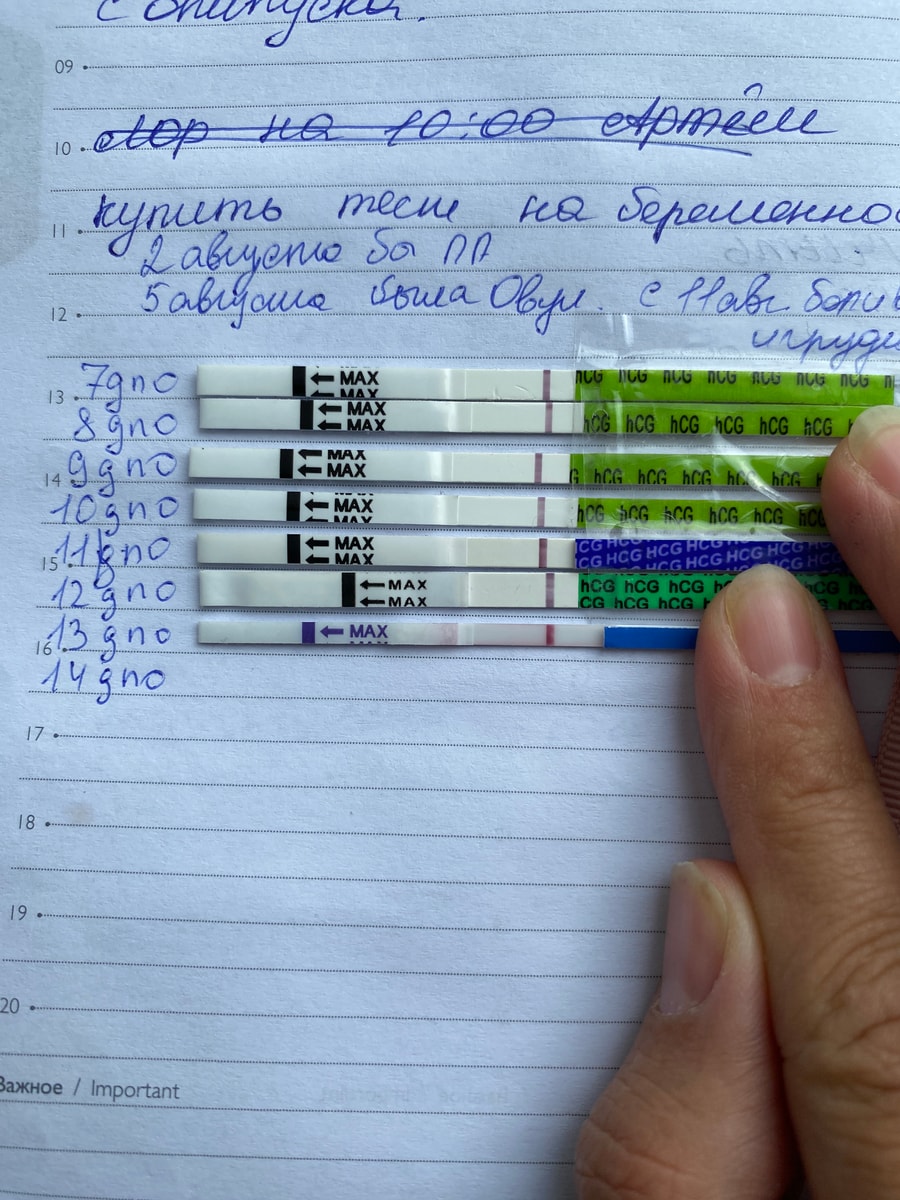 с
09
Лор на 10:00 Артём
10
купить тест на беременнос
11
2 августа бы ПП
5 августа была Овул. с 11 авг.
12
7 дпо
MAX
MAX
hCG hCG hCG hCG hCG hCG hCG
13
8 дпо
MAX
MAX
hCG hCG hCG hCG hCG hCG
9 дпо
MAX
MAX
hCG hCG hCG hCG hCG
14
10 дпо
MAX
hCG hCG hCG hCG hCG
11 дпо
MAX
MAX
CG HCG HCG HCG HCG HCG
HCG HCG HCG HCG HCG
15
12 дпо
MAX
MAX
hCG hCG hCG hCG hCG hCG
CG hCG hCG hCG
13 дпо
MAX
16
14 дпо
17
18
19
20
Важное / Important